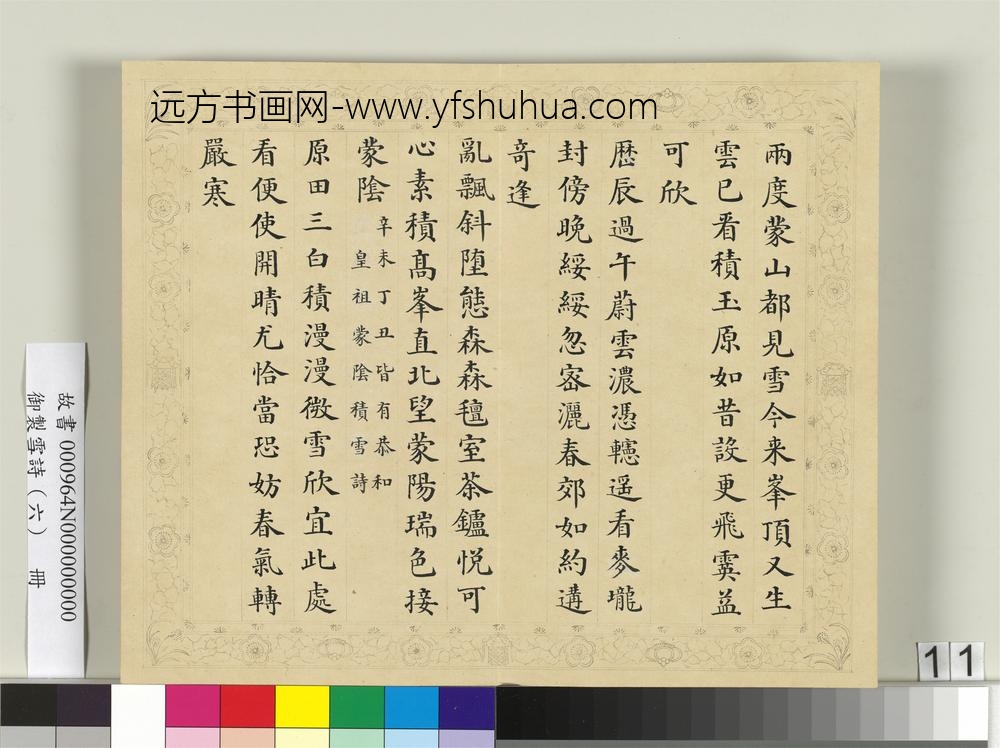 远方书画网-www.yfshuhua.com
兩度蒙山都見雪今来峯頂又生
雲已看積玉原如昔設更飛霙益
可欣
歷辰過午蔚雲濃憑轗遥看麥壠
封傍晚綏綏忽宻灑春郊如約遘
竒逢
亂飄斜堕態森森氊室茶鑪悦可
心素積髙峯直北望蒙陽瑞色接
蒙陰
辛未丁丑皆有恭和
皇祖蒙陰積雪詩
原田三白積漫漫微雪欣宜此處
看便使開晴尤恰當恐妨春氣轉
嚴寒
故書 000964N000000000
御製雪詩（六） 冊
11